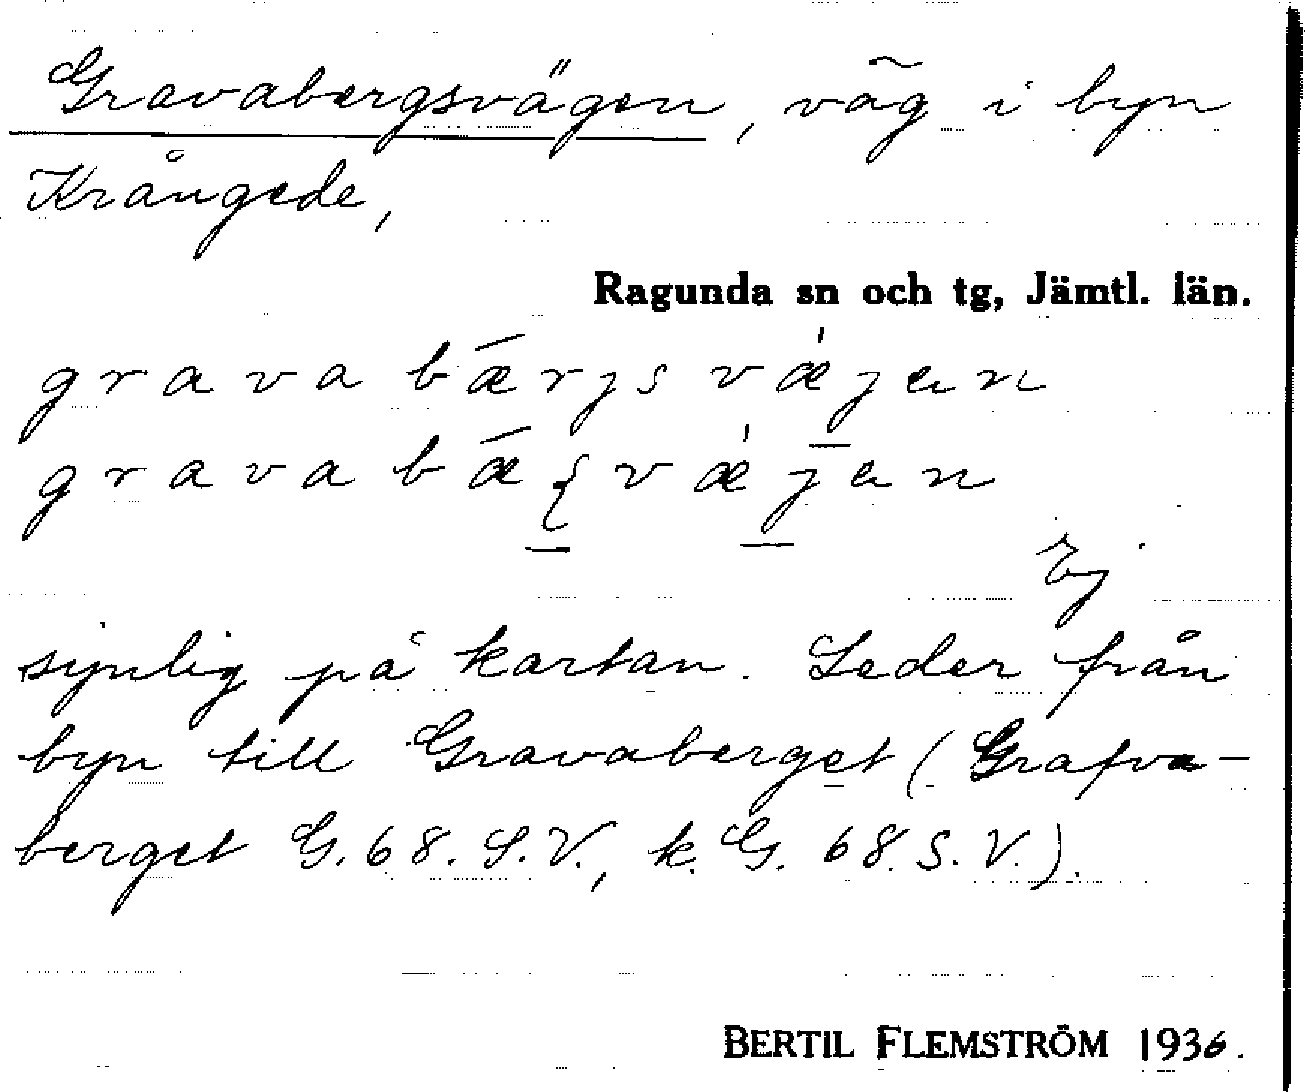 Gravabergsvägen, väg i byn
Krångede,
Ragunda sn och tg, Jämtl. län.
grava bǣrjs væ̍jen
grava bǣʂvæ̍jen
Ej
synlig på kartan. Leder från
byn till Gravaberget (Grafva-
berget G. 68. S.V., k. G. 68. S. V.).
BERTIL FLEMSTRÖM 1936.